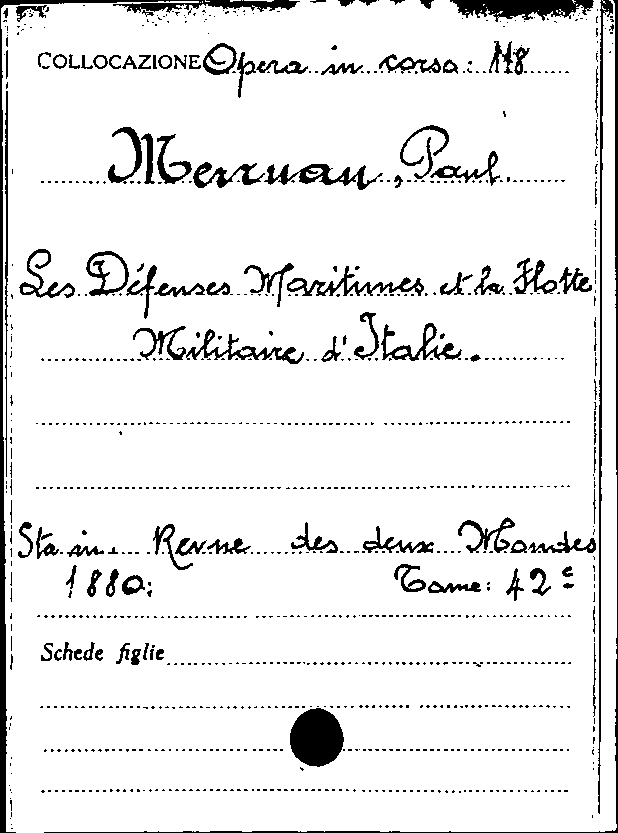 COLLOCAZIONE Opera in corso: 118
Merruau, Paul.
Les Défenses Maritimes et la Flotte
Militaire d'Italie.
Sta in. Revue des deux Mondes
1880; Tome: 42e
Schede figlie